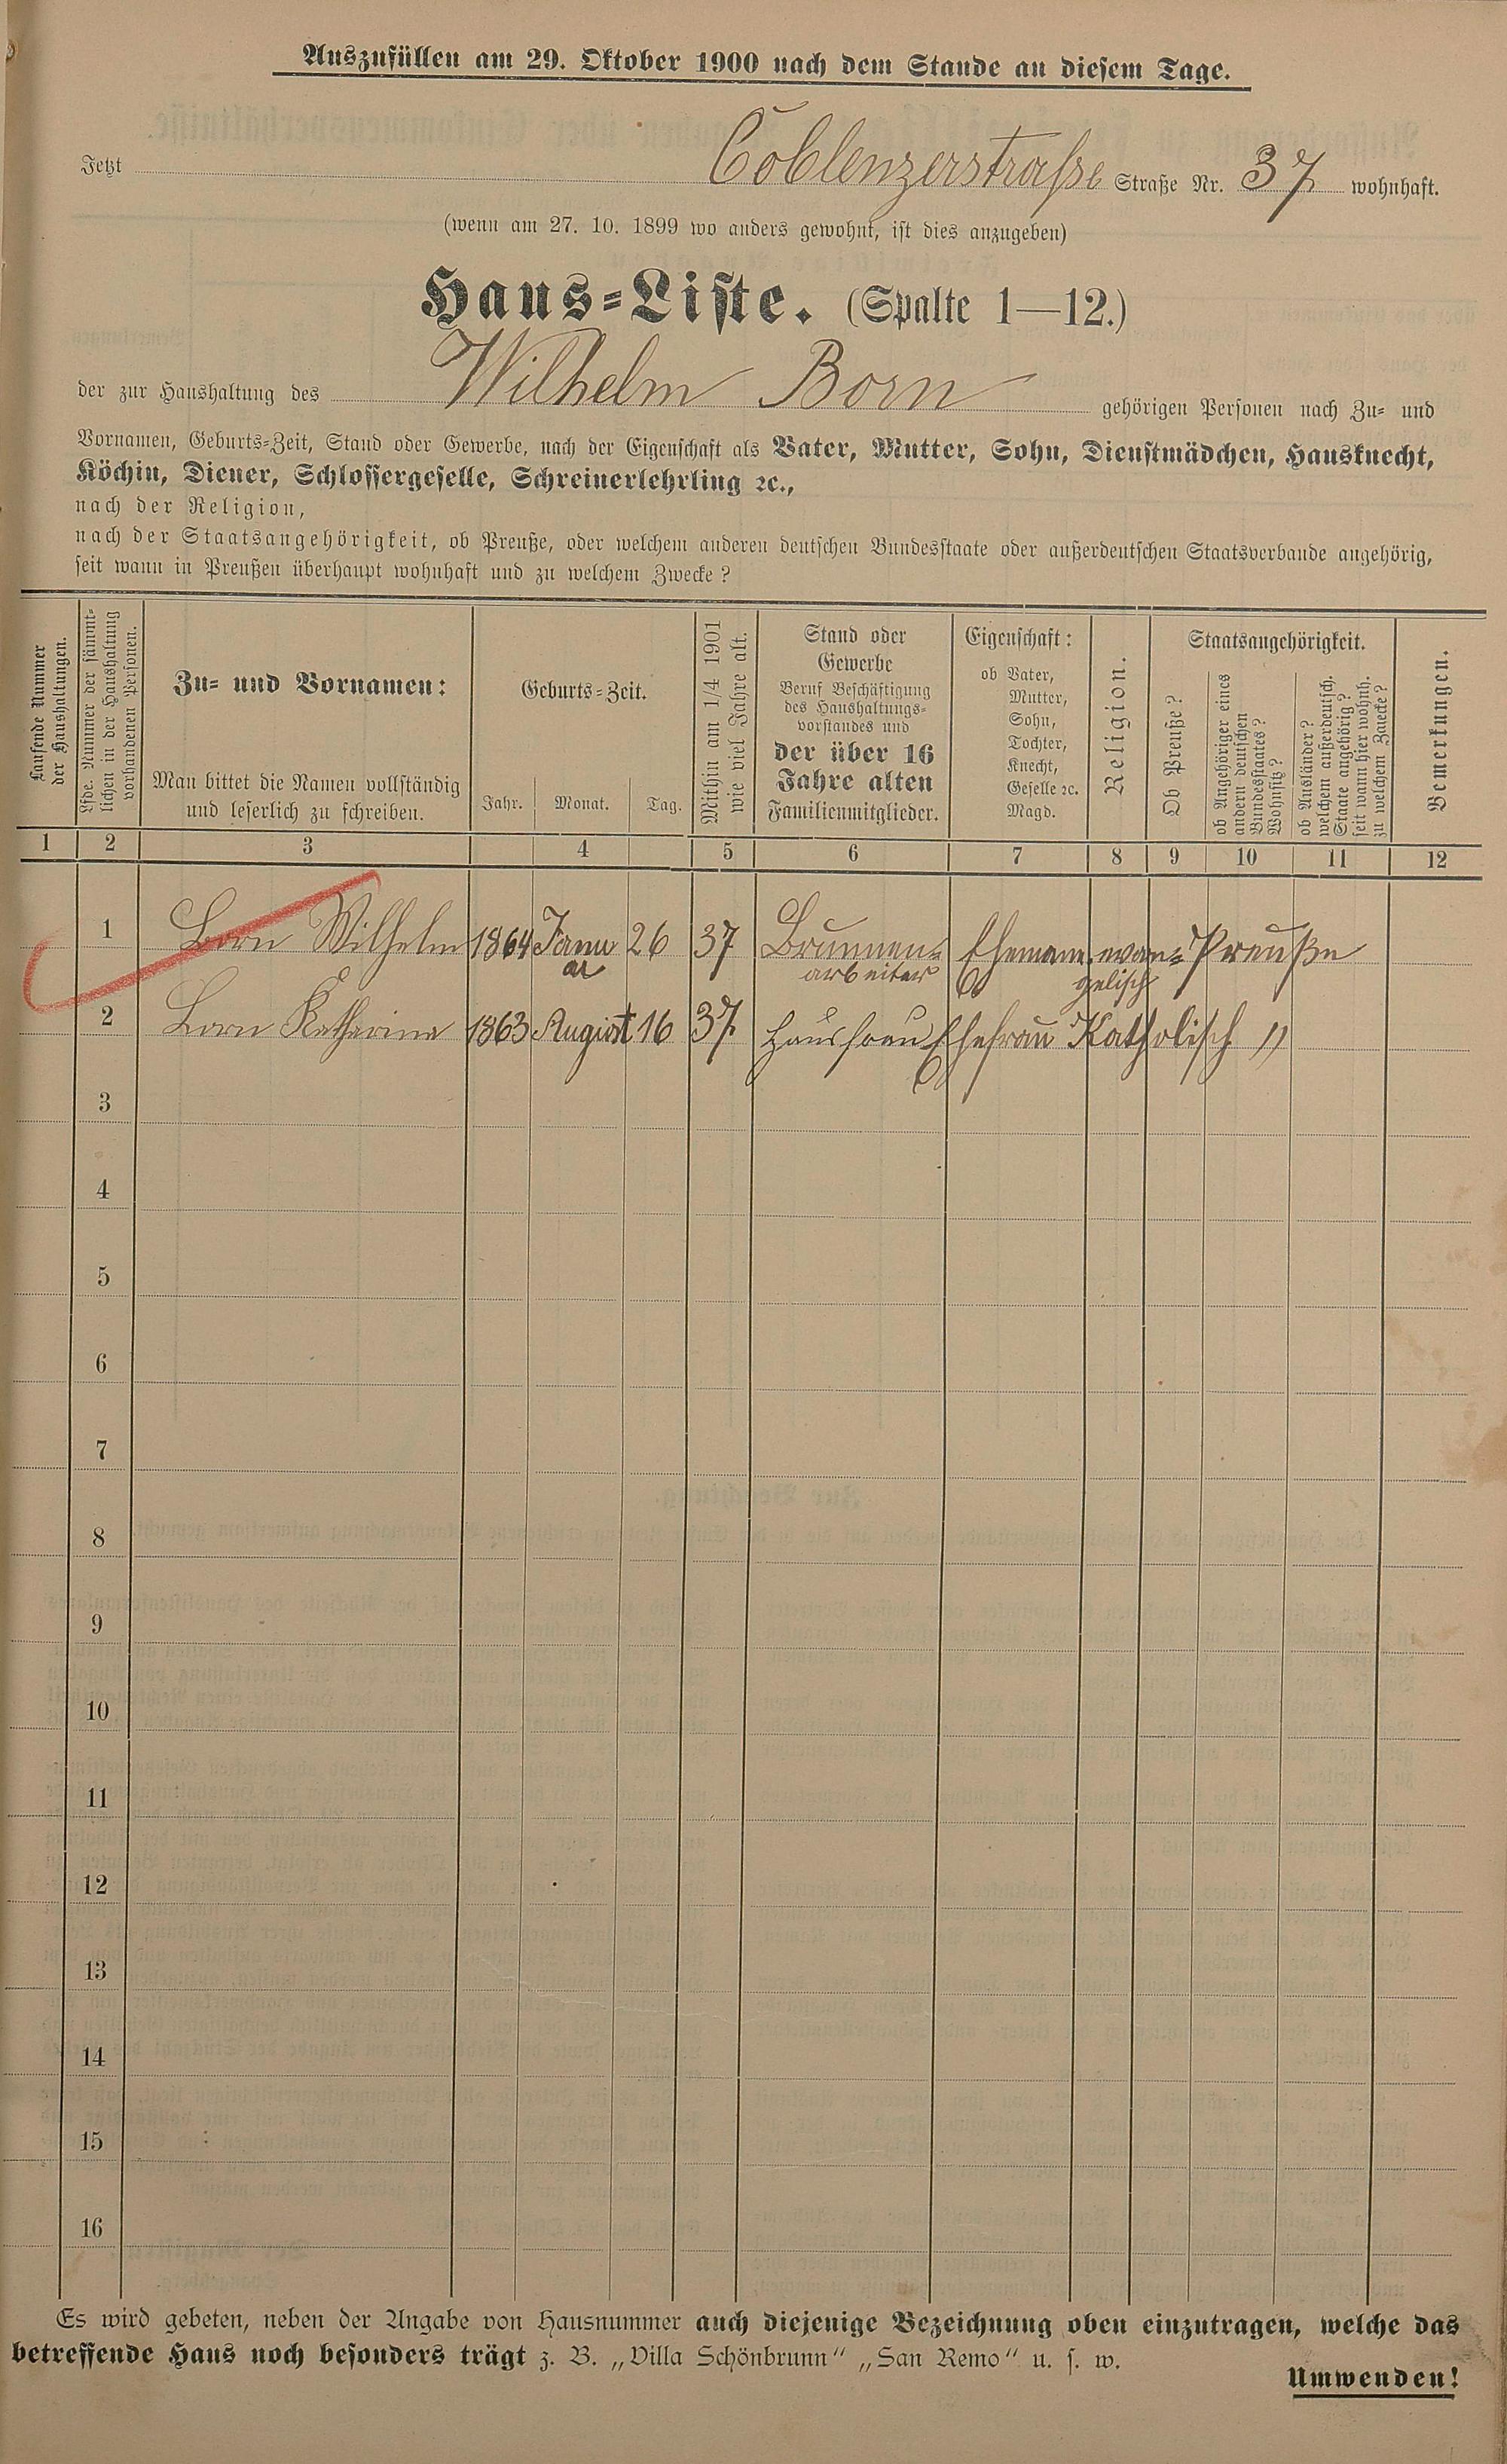 Auszufüllen am 29. Oktober 1900 nach dem Stande an diesem Tage.
Jetzt Coblenzerstraße Straße Nr. 37 wohnhaft.
(wenn am 27. 10. 1899 wo anders gewohnt, ist dies anzugeben)
Haus-Liste. (Spalte 1—12.)
der zur Haushaltung des Wilhelm Born gehörigen Personen nach Zu- und
Vornamen, Geburts-Zeit, Stand oder Gewerbe, nach der Eigenschaft als Vater, Mutter, Sohn, Dienstmädchen, Hausknecht,
Köchin, Diener, Schlossergeselle, Schreinerlehrling ꝛc.,
nach der Religion,
nach der Staatsangehörigkeit, ob Preuße, oder welchem anderen deutschen Bundesstaate oder außerdeutschen Staatsverbande angehörig,
seit wann in Preußen überhaupt wohnhaft und zu welchem Zwecke?
Laufende Nummer
der Haushaltungen.
Lfde. Nummer der sämmt-
lichen in der Haushaltung
vorhandenen Personen.
Zu- und Vornamen:
Man bittet die Namen vollständig
und leserlich zu schreiben.
Geburts-Zeit.
Jahr. Monat. Tag.
Mithin am 1/4 1901
wie viel Jahre alt.
Stand oder
Gewerbe
Beruf Beschäftigung
des Haushaltungs-
vorstandes und
der über 16
Jahre alten
Familienmitglieder.
Eigenschaft:
ob Vater,
Mutter,
Sohn,
Tochter,
Knecht,
Geselle ꝛc.
Magd.
Religion.
Staatsangehörigkeit.
Ob Preuße?
ob Angehöriger eines
andern deutschen
Bundesstaates?
Wohnsitz?
ob Ausländer?
welchem außerdeutsch.
Staate angehörig?
seit wann hier wohnh.
zu welchem Zwecke?
Bemerkungen.
1 2 3 4 5 6 7 8 9 10 11 12
1 Born Wilhelm 1864 Janu 26 37 Brunnen= Ehemann evan= Preuße
ar arbeiter gelisch
2 Born Katharina 1863 August 16 37 Hausfrau Ehefrau Katholisch "
3
4
5
6
7
8
9
10
11
12
13
14
15
16
Es wird gebeten, neben der Angabe von Hausnummer auch diejenige Bezeichnung oben einzutragen, welche das
betreffende Haus noch besonders trägt z. B. „Villa Schönbrunn“ „San Remo“ u. s. w.
Umwenden!